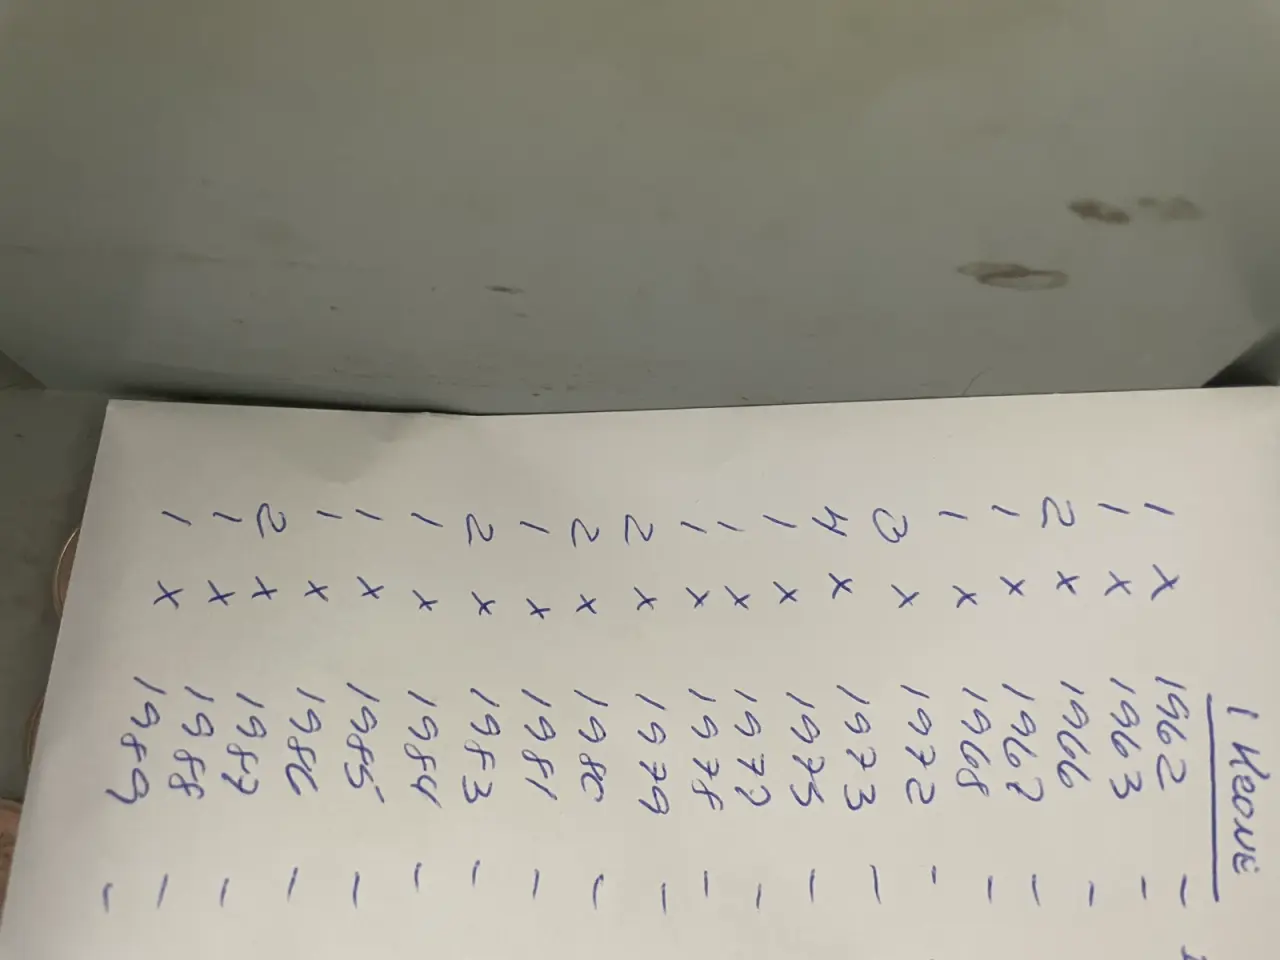 1
1 x 1962 -
1 x 1963 -
2 x 1966 -
1 x 1967 -
1 x 1968 -
3 x 1972 -
4 x 1973 -
1 x 1975 -
1 x 1977 -
1 x 1978 -
2 x 1979 -
2 x 1980 -
1 x 1981 -
2 x 1983 -
1 x 1984 -
1 x 1985 -
1 x 1986 -
2 x 1987 -
1 x 1988 -
1 x 1989 -